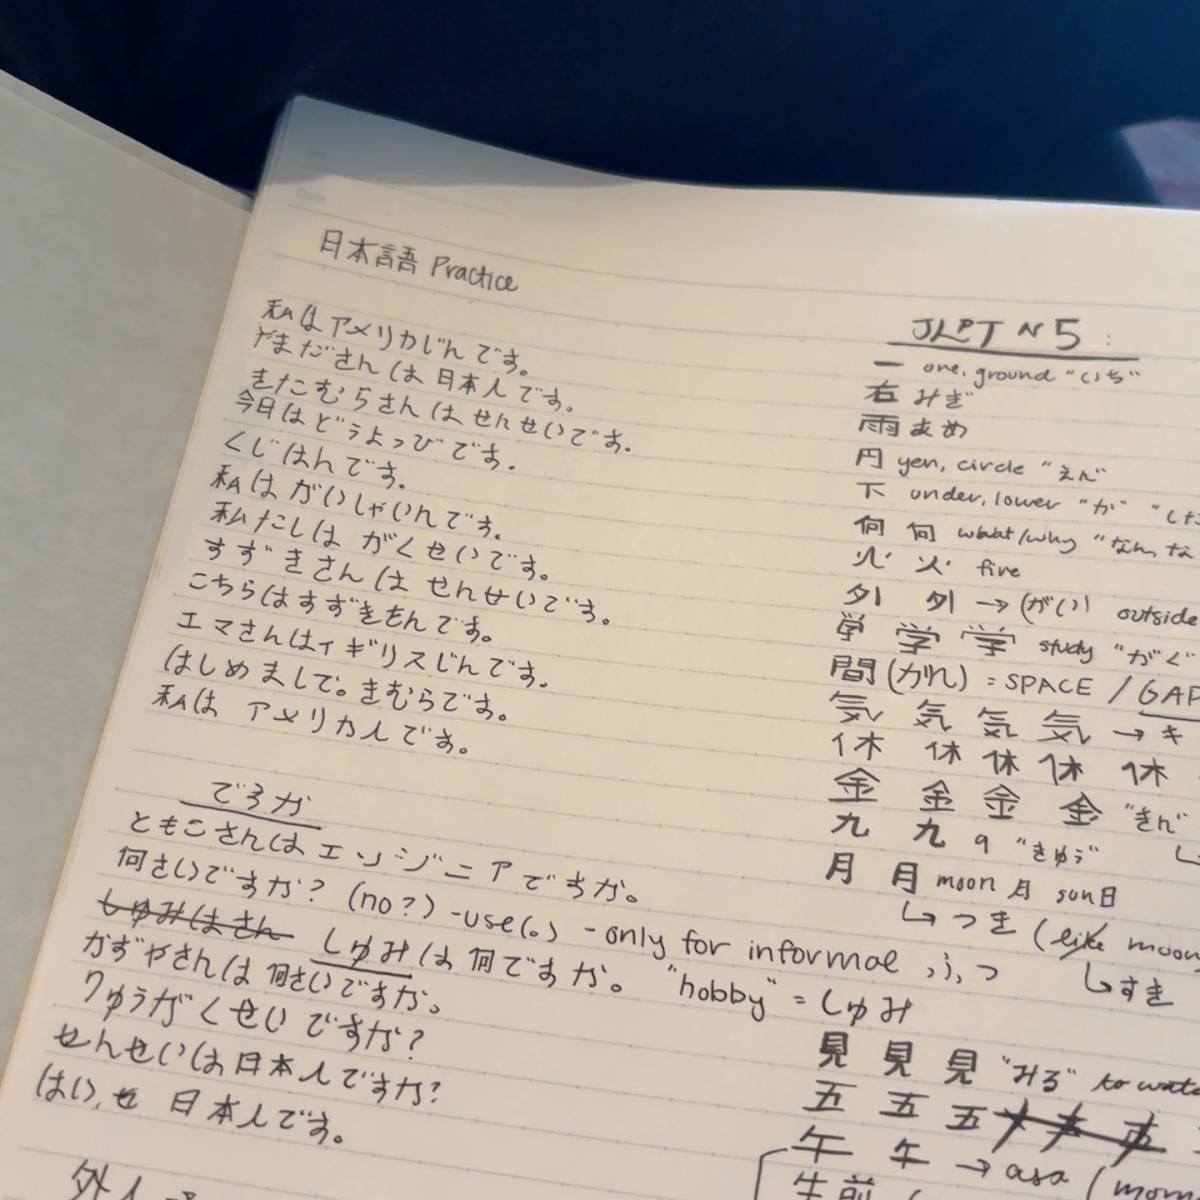 日本語 Practice
私はアメリカじんです。
やまださんは日本人です。
きたむらさんはせんせいです。
今日はどうよっびです。
くじはんです。
私はがいしゃいんです。
私たしはがくせいです。
すずきさんはせんせいです。
こちらはすずきをんです。
エマさんはイギリスじんです。
はじめまして。きむらです。
私はアメリカ人です。
ですか
ともこさんはエンジニアですか。
何さいですか? (no?) -use(。) - only for informal
しゅみはさん しゅみは何ですか。 "hobby" = しゅみ
かずやさんは何さいですか。
りゅうがくせいですか?
せんせいは日本人ですか?
はい、せ 日本人です。
外人
JLPT N5:
一 one, ground "いち"
右 みぎ
雨 あめ
円 yen, circle "えん"
下 under, lower "か"
何 何 what/why "なん, な
火 火 fire
外 外 → (がい) outside
学 学 学 study "がく"
間 (がれ) = SPACE / GAP
気 気 気 気 → キ
休 休 休 休 休
金 金 金 金 "きん"
九 九 9 "きゅう"
月 月 moon 月 sun 日
↳ つき (like moon
↳ すき
見 見 見 "みる" to watch
五 五 五
午 午 → asa (
午前 (